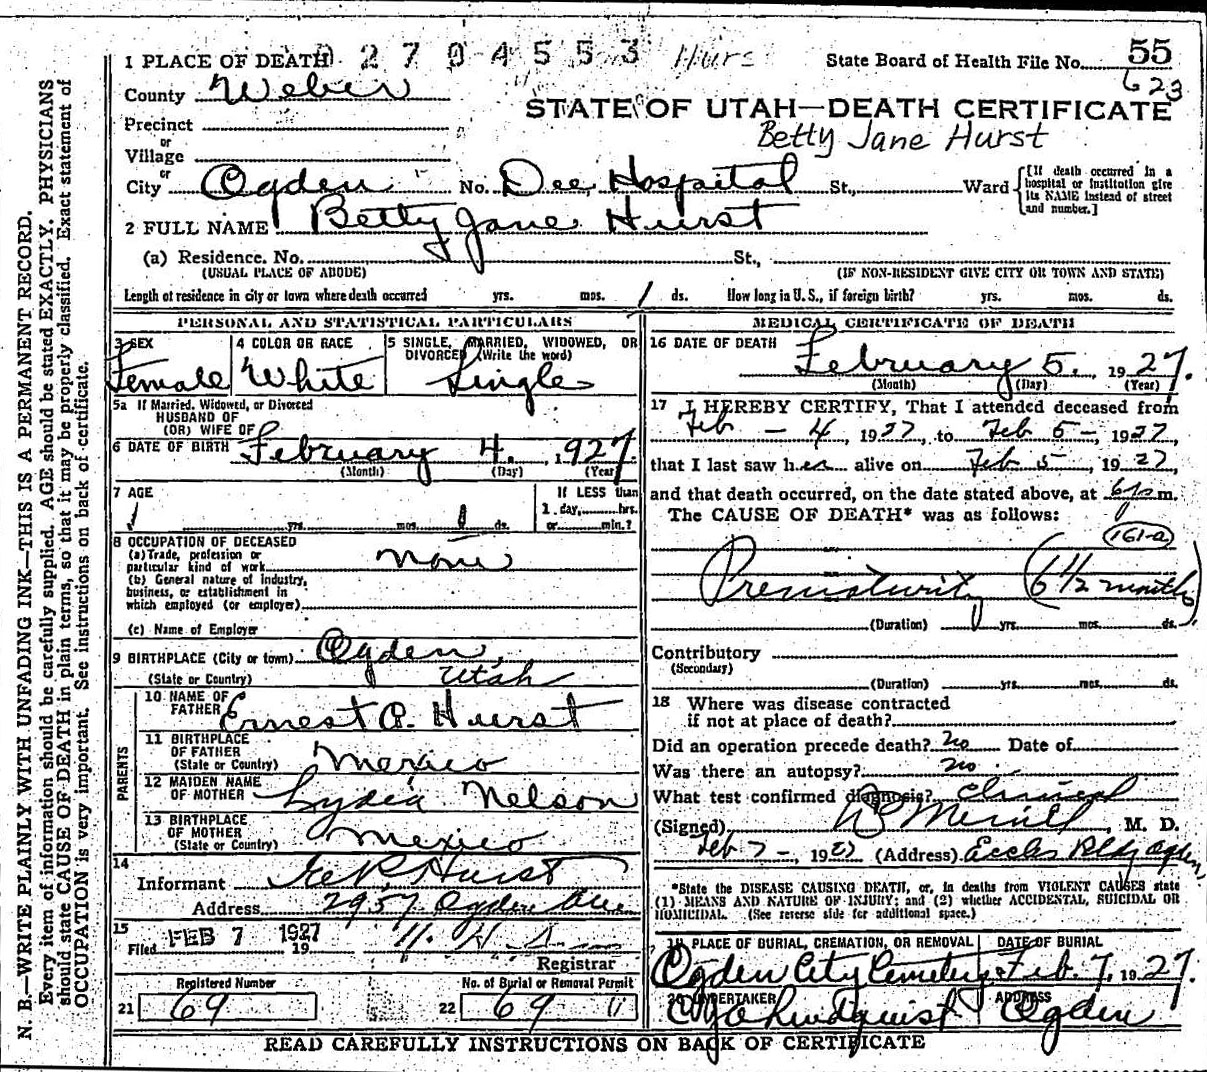 1 PLACE OF DEATH 02704553 Hurs State Board of Health File No. 55
623
County Weber
STATE OF UTAH—DEATH CERTIFICATE
Precinct
Betty Jane Hurst
or
Village
or
City Ogden No. Dee Hospital St., Ward [If death occurred in a hospital or institution give its NAME instead of street and number.]
2 FULL NAME Betty Jane Hurst
(a) Residence. No. St.,
(USUAL PLACE OF ABODE) (IF NON-RESIDENT GIVE CITY OR TOWN AND STATE)
Length of residence in city or town where death occurred yrs. mos. 1 ds. How long in U. S., if foreign birth? yrs. mos. ds.
PERSONAL AND STATISTICAL PARTICULARS
3 SEX 4 COLOR OR RACE 5 SINGLE, MARRIED, WIDOWED, OR DIVORCED (Write the word)
Female White Single
5a If Married, Widowed, or Divorced
HUSBAND OF
(OR) WIFE OF
6 DATE OF BIRTH February 4. 1927.
(Month) (Day) (Year)
7 AGE If LESS than
1 day, hrs.
yrs. mos. 1 ds. or min.?
8 OCCUPATION OF DECEASED
(a) Trade, profession or
particular kind of work none
(b) General nature of industry,
business, or establishment in
which employed (or employer)
(c) Name of Employer
9 BIRTHPLACE (City or town) Ogden,
(State or Country) Utah
PARENTS
10 NAME OF
FATHER Ernest A. Hurst
11 BIRTHPLACE
OF FATHER
(State or Country) Mexico
12 MAIDEN NAME
OF MOTHER Lydia Nelson
13 BIRTHPLACE
OF MOTHER
(State or Country) Mexico
14
Informant Hurst
Address 2957 Ogden Ave
15
Filed FEB 7 1927 19
Registrar
Registered Number No. of Burial or Removal Permit
21 69 22 69 11
MEDICAL CERTIFICATE OF DEATH
16 DATE OF DEATH
February 5. 1927.
(Month) (Day) (Year)
17 I HEREBY CERTIFY, That I attended deceased from
Feb - 4, 1927, to Feb 5 -, 1927,
that I last saw her alive on Feb 5, 1927,
and that death occurred, on the date stated above, at 6 p m.
The CAUSE OF DEATH* was as follows:
161-a
Prematurity (6 1/2 months)
(Duration) yrs. mos. ds.
Contributory
(Secondary)
(Duration) yrs. mos. ds.
18 Where was disease contracted
if not at place of death?
Did an operation precede death? no Date of
Was there an autopsy? no.
What test confirmed diagnosis? Clinical
(Signed) Merrill, M. D.
Feb 7 -, 1927 (Address) Eccles Bldg Ogden,
*State the DISEASE CAUSING DEATH, or, in deaths from VIOLENT CAUSES state
(1) MEANS AND NATURE OF INJURY; and (2) whether ACCIDENTAL, SUICIDAL OR
HOMICIDAL. (See reverse side for additional space.)
19 PLACE OF BURIAL, CREMATION, OR REMOVAL DATE OF BURIAL
Ogden City Cemetery Feb. 7, 1927.
20 UNDERTAKER ADDRESS
Lindquist Ogden
READ CAREFULLY INSTRUCTIONS ON BACK OF CERTIFICATE
N. B.—WRITE PLAINLY WITH UNFADING INK—THIS IS A PERMANENT RECORD.
Every item of information should be carefully supplied. AGE should be stated EXACTLY. PHYSICIANS
should state CAUSE OF DEATH in plain terms, so that it may be properly classified. Exact statement of
OCCUPATION is very important. See instructions on back of certificate.